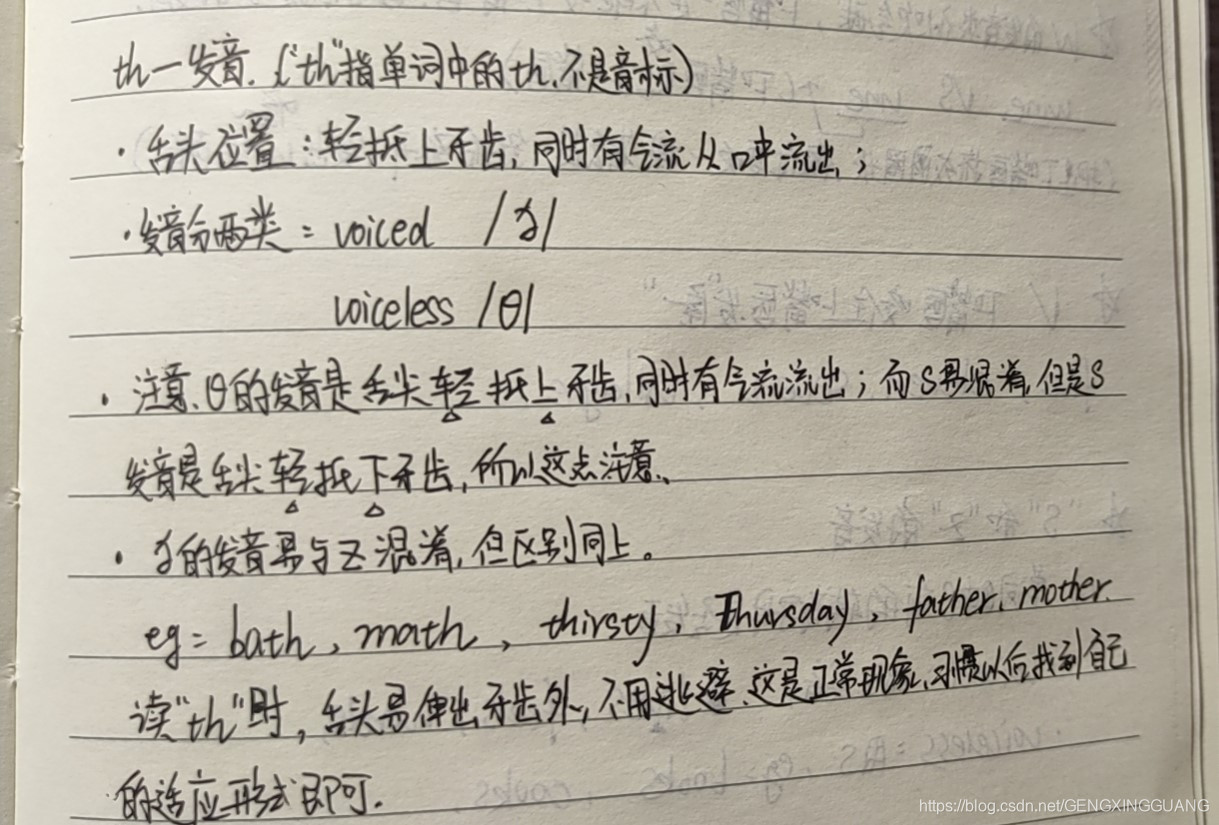 th一发音.（"th"指单词中的th,不是音标）
·舌头位置:轻抵上牙齿,同时有气流从口中流出;
·发音分两类: voiced /ð/
voiceless /θ/
·注意、θ的发音是舌尖轻抵上牙齿,同时有气流流出;而s易混淆,但是s
发音是舌尖轻抵下牙齿,所以这点注意、
·ð的发音易与z混淆,但区别同上。
eg: bath, math, thirsty, Thursday, father, mother.
读"th"时,舌头易伸出牙齿外,不用逃避、这是正常现象,习惯以后找到自己
的适应形式即可.
https://blog.csdn.net/GENGXINGGUANG